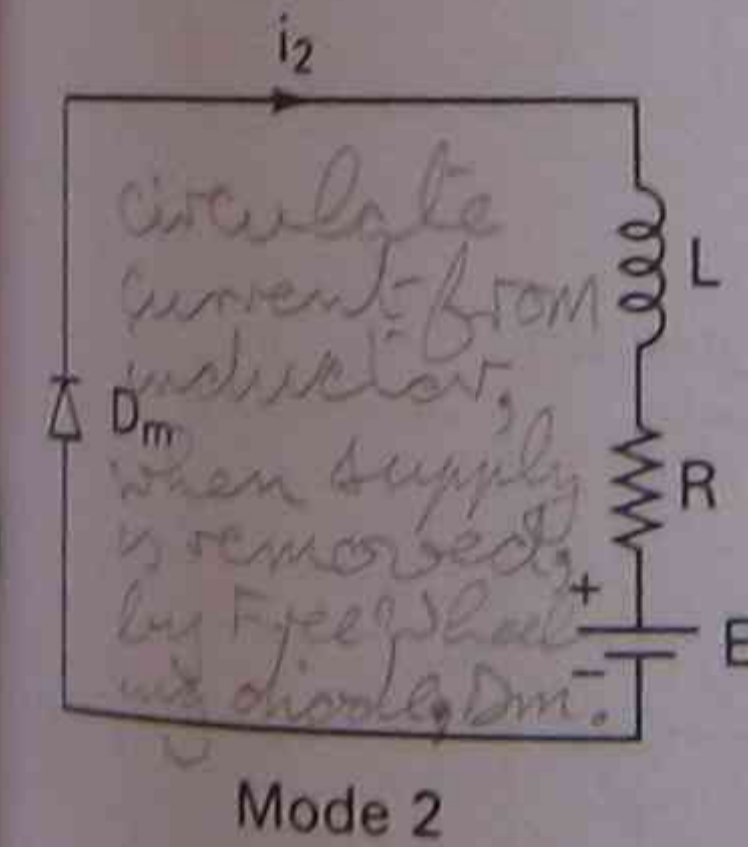 i2
circulate
current from
inductor,
when supply
is removed,
by Freewheel
ing diode, Dm.
L
Dm
R
+
E
−
Mode 2